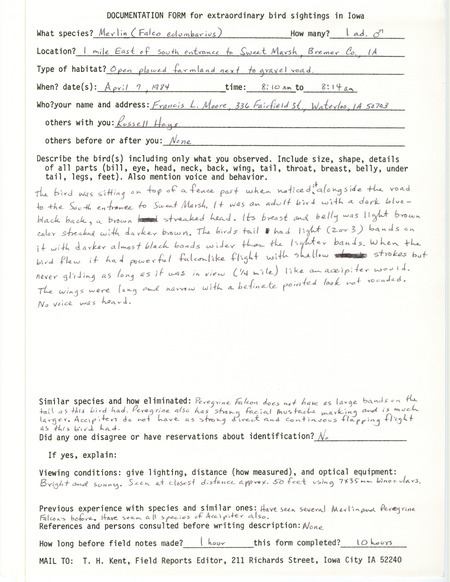 DOCUMENTATION FORM for extraordinary bird sightings in Iowa
What species? Merlin (Falco columbarius) How many? 1 ad. ♂
Location? 1 mile East of south entrance to Sweet Marsh, Bremer Co., IA
Type of habitat? Open plowed farmland next to gravel road.
When? date(s): April 7, 1984 time: 8:10 am to 8:14 am
Who? your name and address: Francis L. Moore, 336 Fairfield St., Waterloo, IA 50703
others with you: Russell Hays
others before or after you: None
Describe the bird(s) including only what you observed. Include size, shape, details
of all parts (bill, eye, head, neck, back, wing, tail, throat, breast, belly, under
tail, legs, feet). Also mention voice and behavior.
The bird was sitting on top of a fence part when noticed it alongside the road
to the South entrance to Sweet Marsh. It was an adult bird with a dark blue-
black back, a brown streaked head. Its breast and belly was light brown
color streaked with darker brown. The birds tail had light (2 or 3) bands on
it with darker almost black bands wider than the lighter bands. When the
bird flew it had powerful falconlike flight with shallow strokes but
never gliding as long as it was in view (1/4 mile) like an accipiter would.
The wings were long and narrow with a definate pointed look not rounded.
No voice was heard.
Similar species and how eliminated: Peregrine Falcon does not have as large bands on the
tail as this bird had. Peregrine also has strong facial mustache marking and is much
larger. Accipiters do not have as strong direct and continuous flapping flight
as this bird had.
Did any one disagree or have reservations about identification? No
If yes, explain:
Viewing conditions: give lighting, distance (how measured), and optical equipment:
Bright and sunny. Seen at closest distance approx. 50 feet using 7x35mm binoculars.
Previous experience with species and similar ones: Have seen several Merlin and Peregrine
Falcons before. Have seen all species of Accipiter also.
References and persons consulted before writing description: None
How long before field notes made? 1 hour this form completed? 10 hours
MAIL TO: T. H. Kent, Field Reports Editor, 211 Richards Street, Iowa City IA 52240